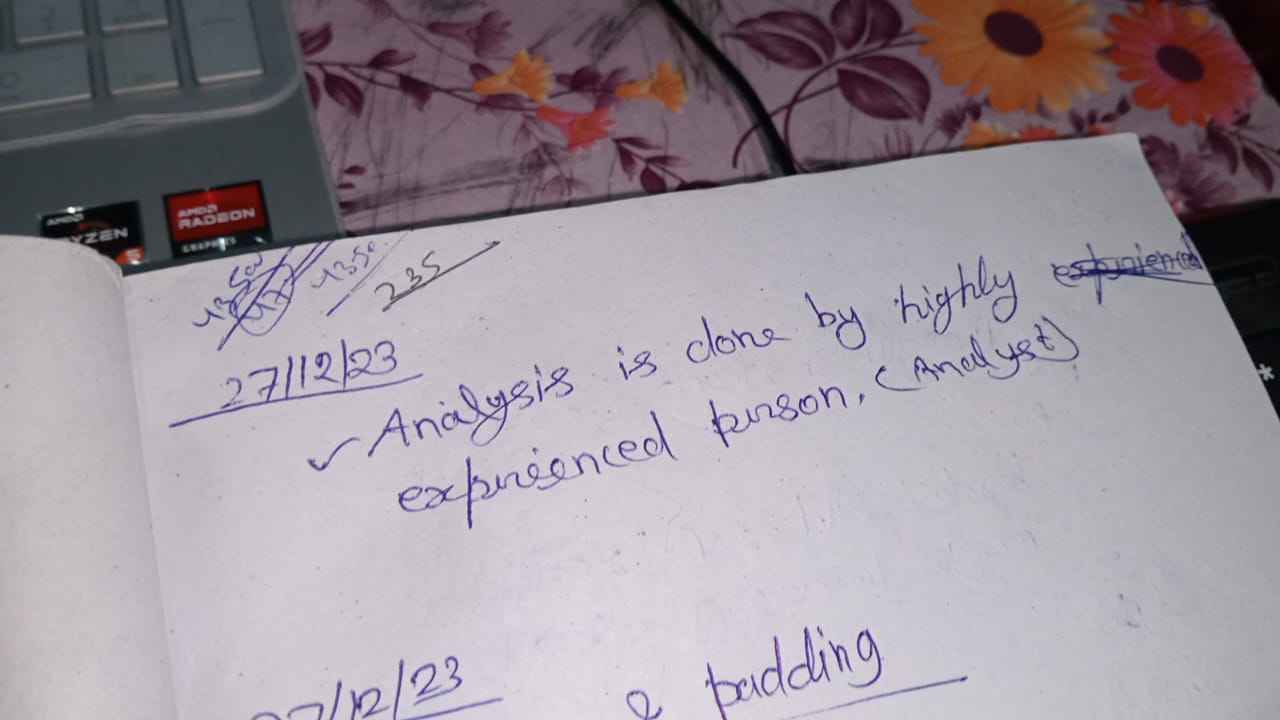 AMDA
RYZEN
5
AMDA
RADEON
GRAPHICS
4350
235
27/12/23
✓ Analysis is done by highly experienced
experienced person. (Analyst)
27/12/23
& padding
*